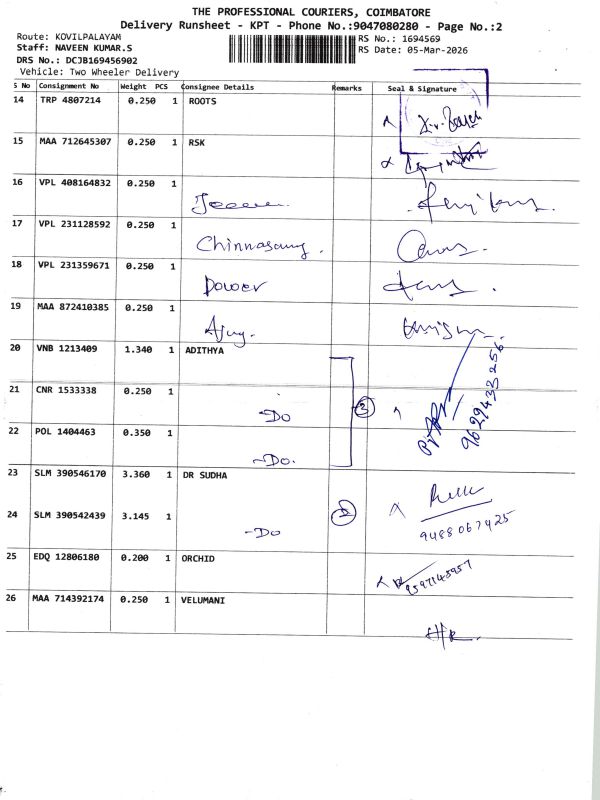 THE PROFESSIONAL COURIERS, COIMBATORE
Delivery Runsheet - KPT - Phone No.:9047080280 - Page No.:2
Route: KOVILPALAYAM
RS No.: 1694569
Staff: NAVEEN KUMAR.S
RS Date: 05-Mar-2026
DRS No.: DCJB169456902
Vehicle: Two Wheeler Delivery
S No Consignment No Weight PCS Consignee Details Remarks Seal & Signature
14 TRP 4807214 0.250 1 ROOTS
15 MAA 712645307 0.250 1 RSK
16 VPL 408164832 0.250 1
17 VPL 231128592 0.250 1
Chinnasamy.
18 VPL 231359671 0.250 1
Dower
19 MAA 872410385 0.250 1
Ajuy.
20 VNB 1213409 1.340 1 ADITHYA
21 CNR 1533338 0.250 1
-Do 3
9629433256
22 POL 1404463 0.350 1
-Do.
23 SLM 390546170 3.360 1 DR SUDHA
24 SLM 390542439 3.145 1
-Do 2
9488067425
25 EDQ 12806180 0.200 1 ORCHID
9597145957
26 MAA 714392174 0.250 1 VELUMANI